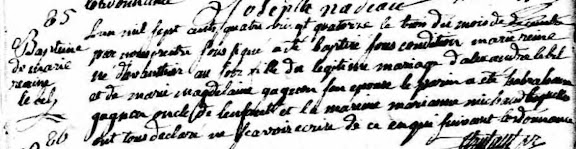 85
Bapteme
de marie
reinne
le bel
L'an mil sept cents quatre vingt quatorze le trois du mois de decembre
par nous pretre soussigné a été baptisé sous condition marie reine
née d'avanthier au du legitime mariage d'alexandre lebel
et de marie magdelaine gagnon son epouse le parein a été abraham
gagnon oncle de lenfant et la mareine marianne michaud lesquels
ont tous declaré ne scavoir ecrire de ce enqui suivant l'ordonnance
86